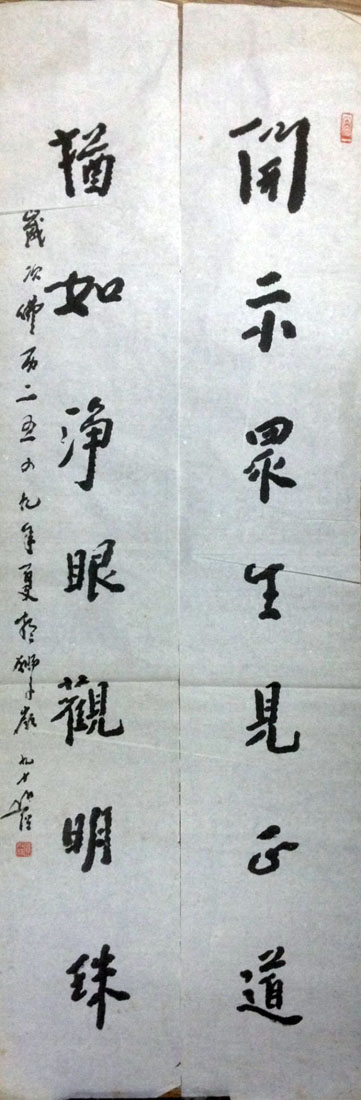 開示眾生見正道
猶如淨眼觀明珠
歲次佛 二五四九年夏於獅 九十